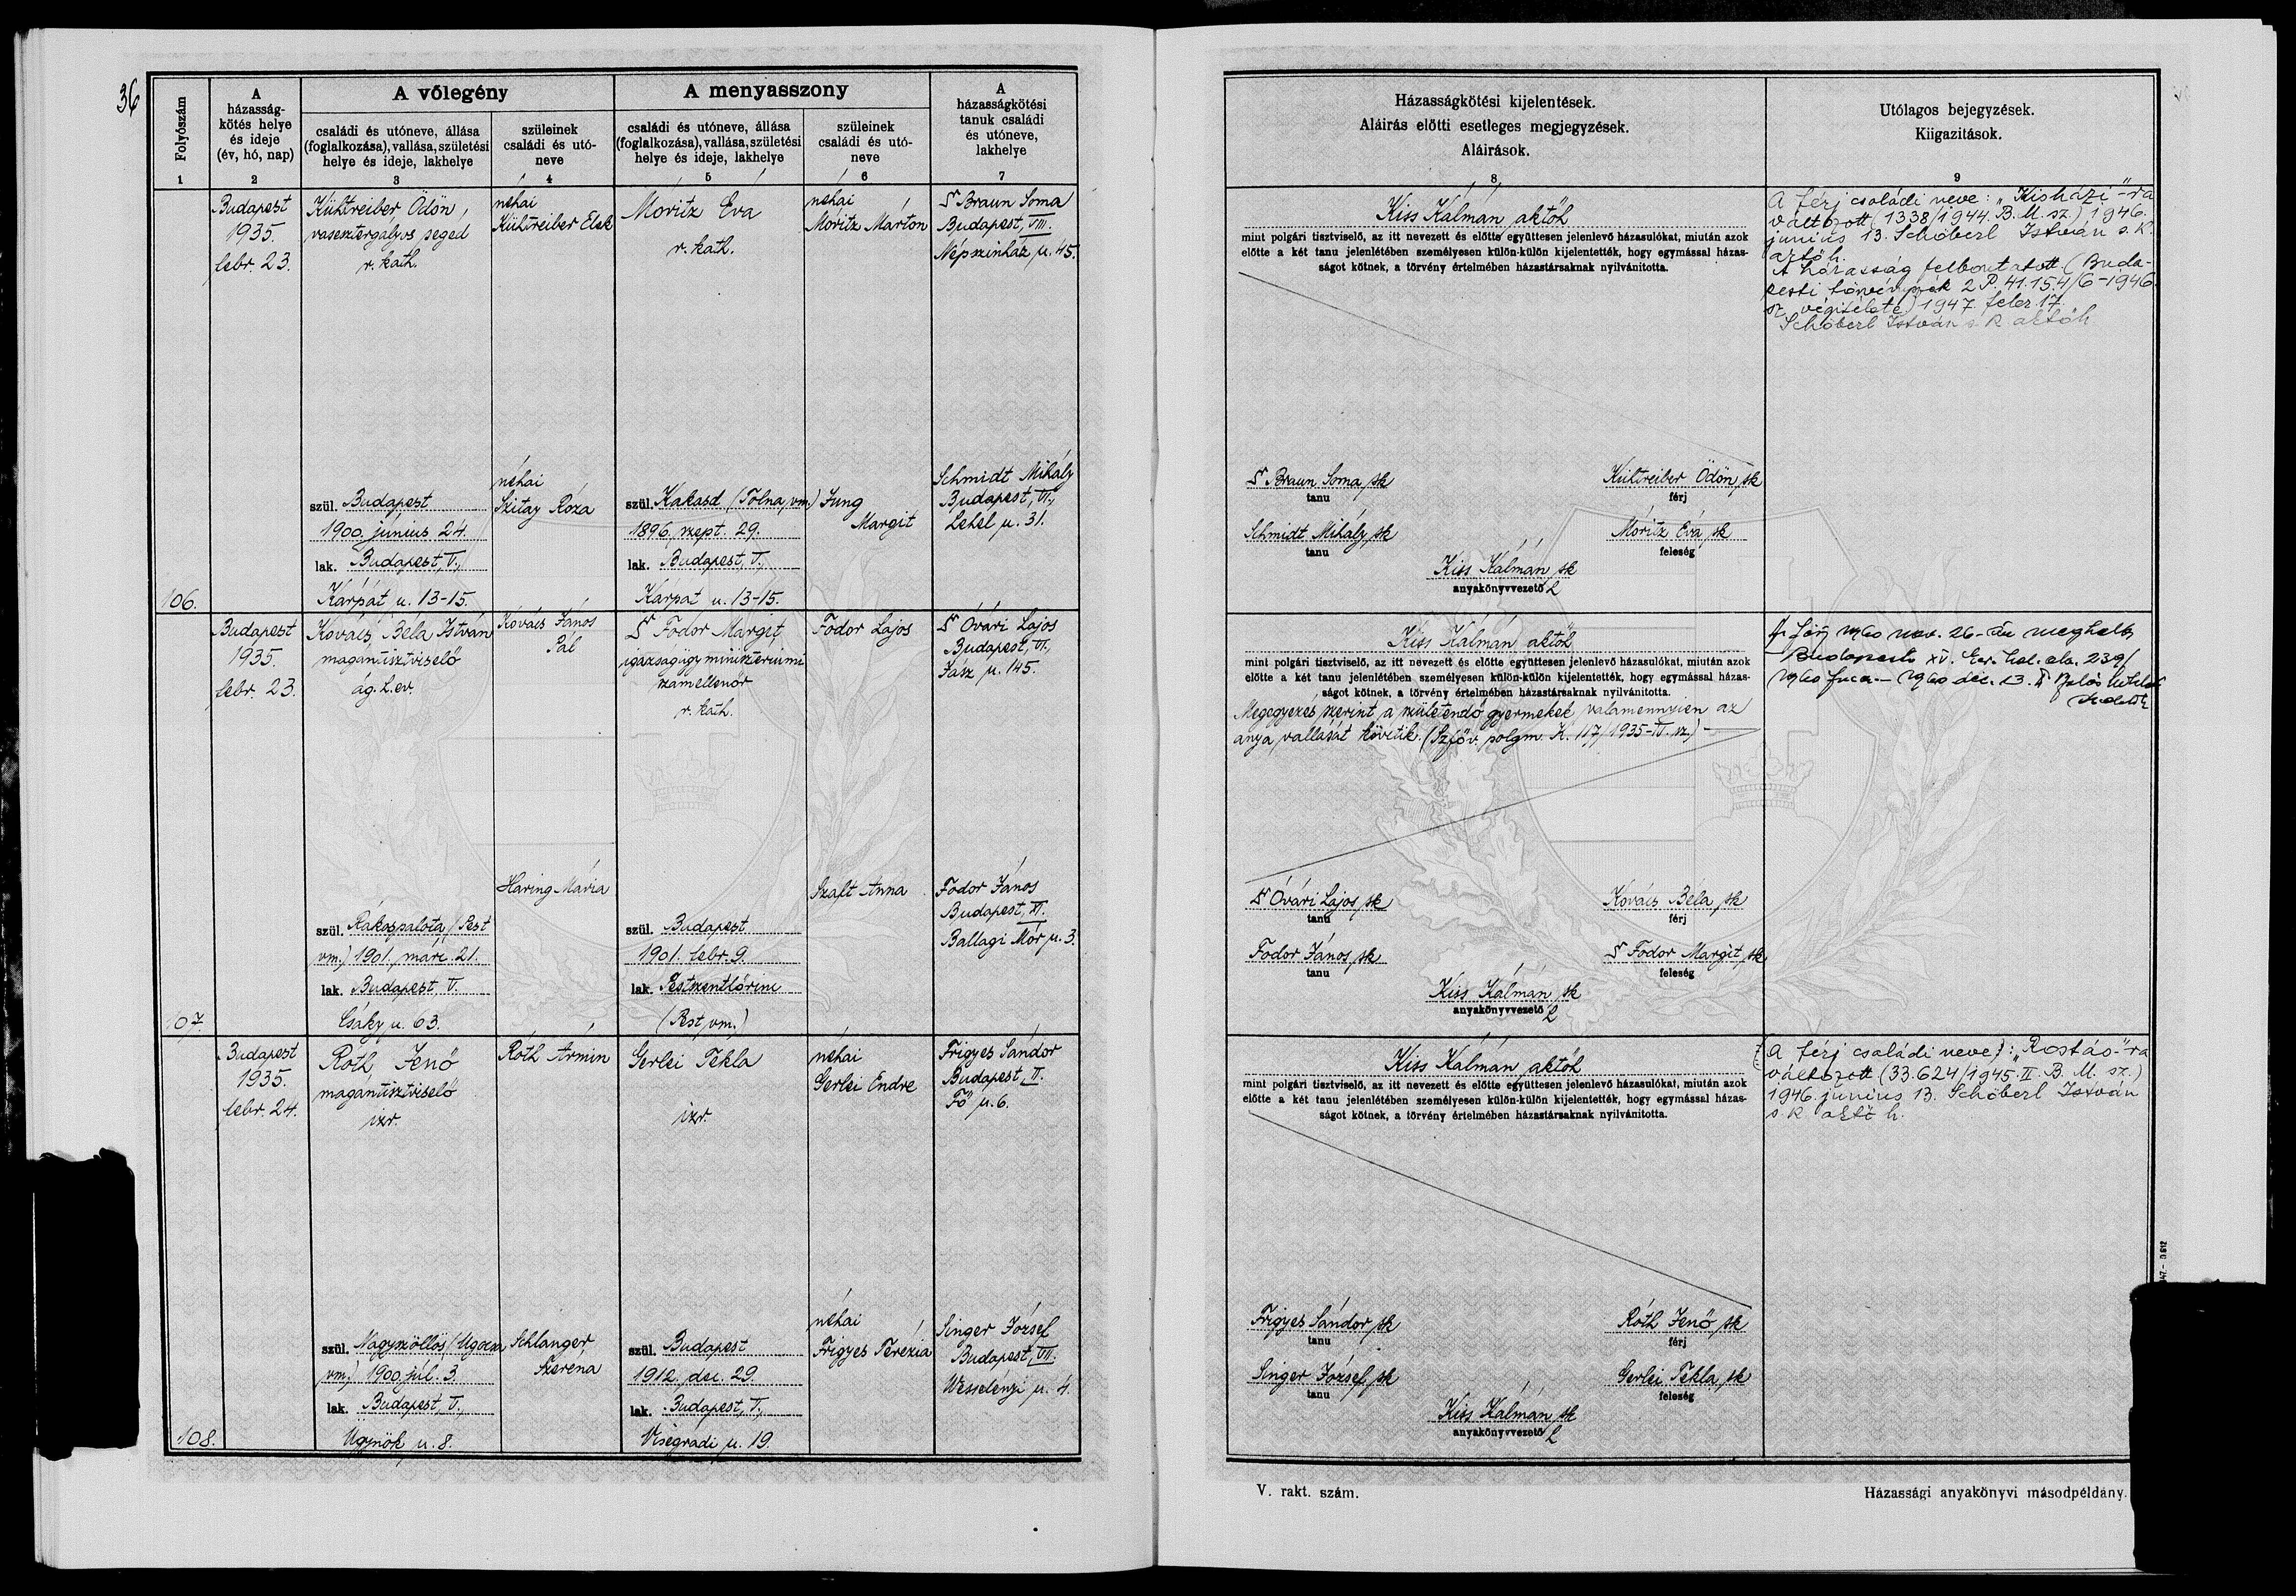 36
Folyószám
A házasság-
kötés helye
és ideje
(év, hó, nap)
A vőlegény
családi és utóneve, állása
(foglalkozása), vallása, születési
helye és ideje, lakhelye
szüleinek
családi és utó-
neve
A menyasszony
családi és utóneve, állása
(foglalkozása), vallása, születési
helye és ideje, lakhelye
szüleinek
családi és utó-
neve
A
házasságkötési
tanuk családi
és utóneve,
lakhelye
1 2 3 4 5 6 7
106.
Budapest
1935.
febr. 23.
Kühtreiber Ödön,
vasesztergályos segéd
r. kath.
szül. Budapest
1900. junius 24.
lak. Budapest, V.,
Kárpát u. 13-15.
néhai
Kühtreiber Elek
néhai
Szitay Róza
Móritz Éva
r. kath.
szül. Kakasd (Tolna vm.)
1896. szept. 29.
lak. Budapest, V.,
Kárpát u. 13-15.
néhai
Móritz Márton
Jung
Margit
Braun Soma
Budapest, VIII.
Népszinház u. 45.
Schmidt Mihály
Budapest, VI.,
Lehel u. 31.
107.
Budapest
1935.
febr. 23.
Kovács Béla István
magántisztviselő
ág. h. ev.
szül. Rákospalota (Pest
vm.) 1901. márc. 21.
lak. Budapest, V.
Csáky u. 63.
Kovács János
Pál
Haring Mária
Fodor Margit
igazságügyminiszteriumi
számellenőr
r. kath.
szül. Budapest
1901. febr. 9.
lak. Pestszentlőrinc
(Pest vm.)
Fodor Lajos
Szalt Anna
Óvári Lajos
Budapest, VI.,
Jász u. 145.
Fodor János
Budapest, XI.
Ballagi Mór u. 3.
108.
Budapest
1935.
febr. 24.
Róth Jenő
magántisztviselő
izr.
szül. Nagyszöllös (Ugocsa
vm.) 1900. júl. 3.
lak. Budapest, V.,
Ügynök u. 8.
Róth Ármin
Schlanger
Szeréna
Gerlei Tekla
izr.
szül. Budapest
1912. dec. 29.
lak. Budapest, V.,
Visegrádi u. 19.
néhai
Gerlei Endre
néhai
Frigyes Terézia
Frigyes Sándor
Budapest, II.
Fő u. 6.
Singer József
Budapest, VII.
Wesselényi u. 4.
Házasságkötési kijelentések.
Aláirás előtti esetleges megjegyzések.
Aláirások.
8
Utólagos bejegyzések.
Kiigazitások.
9
Kiss Kálmán aktőh
mint polgári tisztviselő, az itt nevezett és előtte együttesen jelenlevő házasulókat, miután azok
előtte a két tanu jelenlétében személyesen külön-külön kijelentették, hogy egymással házas-
ságot kötnek, a törvény értelmében házastársaknak nyilvánitotta.
Braun Soma sk
tanu
Kühtreiber Ödön sk
férj
Schmidt Mihály sk
tanu
Móritz Éva sk
feleség
Kiss Kálmán sk
anyakönyvvezető h
A férj családi neve: „Kisházi"-ra
változott (1338/1944. B. M. sz.) 1946.
junius 13. Schöberl István s. k.
aktőh.
A házasság felbontatott (Buda-
pesti törvényszék 2 P. 41.154/6-1946.
sz. végitélete) 1947 febr. 17.
Schöberl István s. k. aktőh
Kiss Kálmán aktőh
mint polgári tisztviselő, az itt nevezett és előtte együttesen jelenlevő házasulókat, miután azok
előtte a két tanu jelenlétében személyesen külön-külön kijelentették, hogy egymással házas-
ságot kötnek, a törvény értelmében házastársaknak nyilvánitotta.
Megegyezés szerint a születendő gyermekek valamennyien az
anya vallását követik. (Szföv. polgm. K. 117/1935-IV. sz.)
Óvári Lajos sk
tanu
Kovács Béla sk
férj
Fodor János sk
tanu
Fodor Margit sk
feleség
Kiss Kálmán sk
anyakönyvvezető h
A férj 1960 nov. 26-án meghalt
Budapest XV. ker. hal. ak. 239/
1960 1960 dec. 13.
Kiss Kálmán aktőh
mint polgári tisztviselő, az itt nevezett és előtte együttesen jelenlevő házasulókat, miután azok
előtte a két tanu jelenlétében személyesen külön-külön kijelentették, hogy egymással házas-
ságot kötnek, a törvény értelmében házastársaknak nyilvánitotta.
Frigyes Sándor sk
tanu
Róth Jenő sk
férj
Singer József sk
tanu
Gerlei Tekla sk
feleség
Kiss Kálmán sk
anyakönyvvezető h
A férj családi neve: „Rostás"-ra
változott (33.624/1945. II. B. M. sz.)
1946. junius 13. Schöberl István
s. k. aktőh.
V. rakt. szám.
Házassági anyakönyvi másodpéldány.